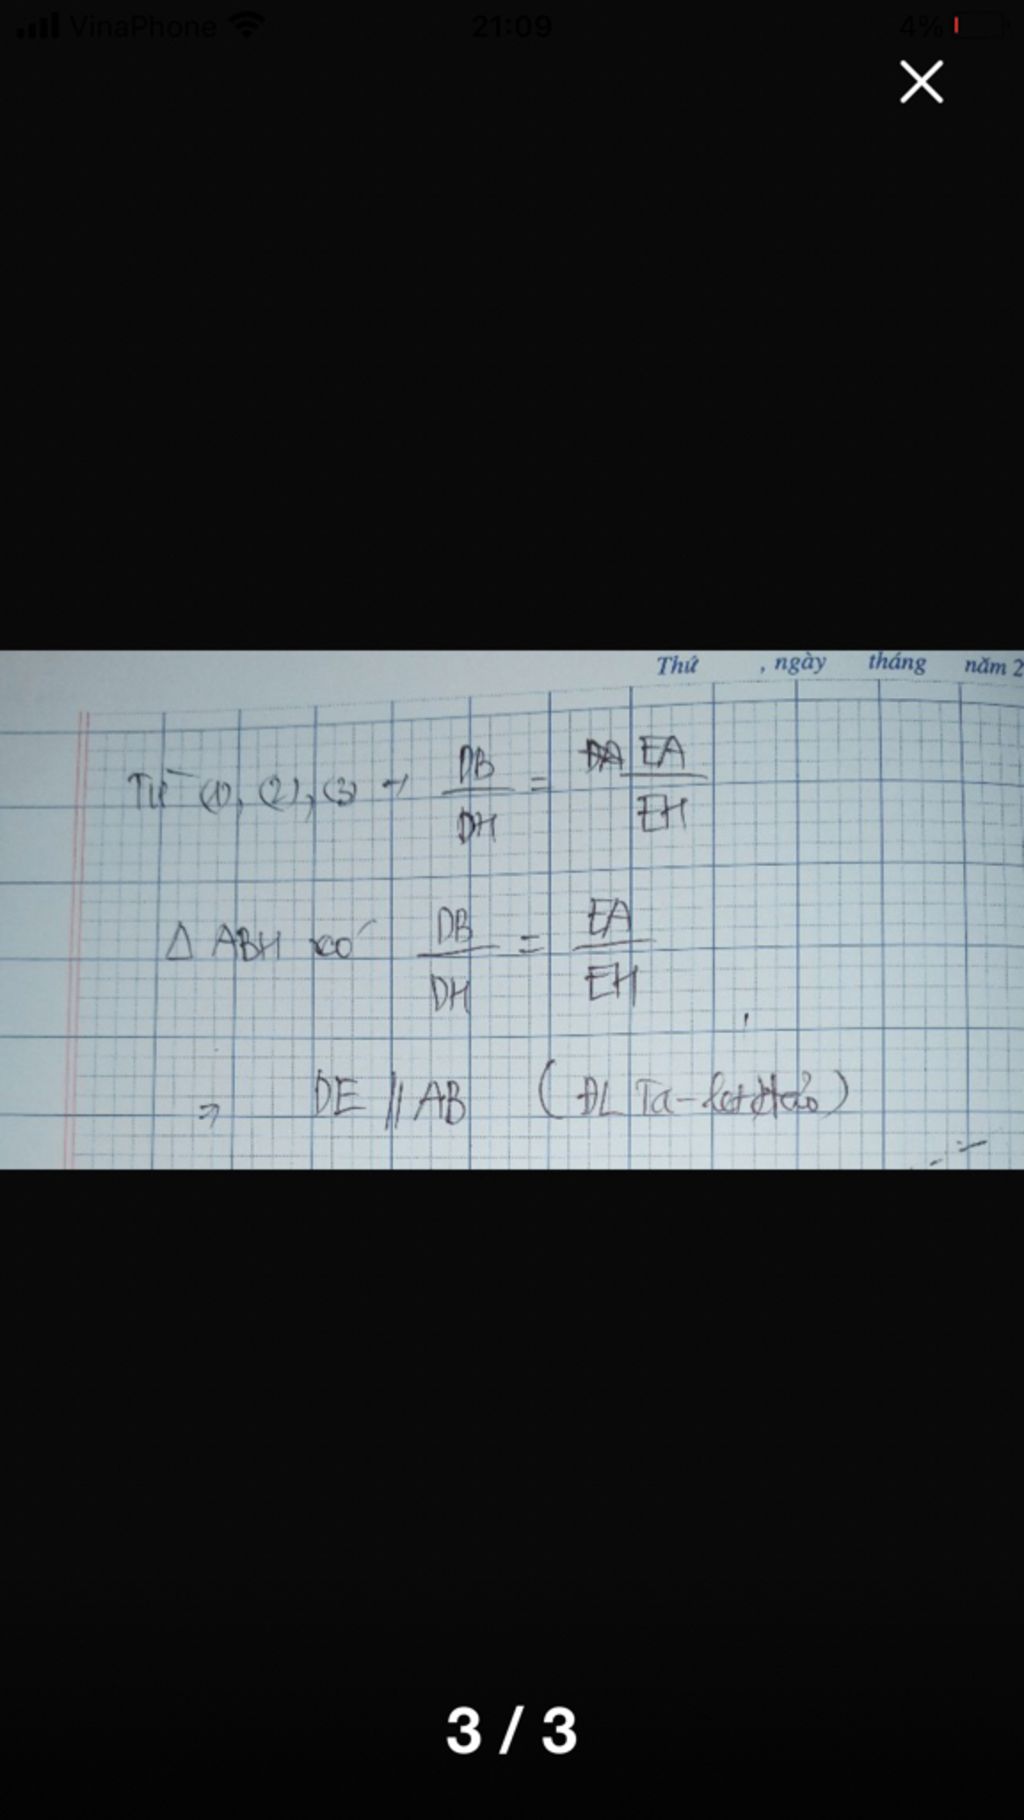 VinaPhone 21:09 4%
Thứ , ngày tháng năm 2
Từ (1), (2), (3) → DB/DH = EA/EH
Δ ABH có DB/DH = EA/EH
⇒ DE // AB (ĐL Ta-let đảo)
3 / 3